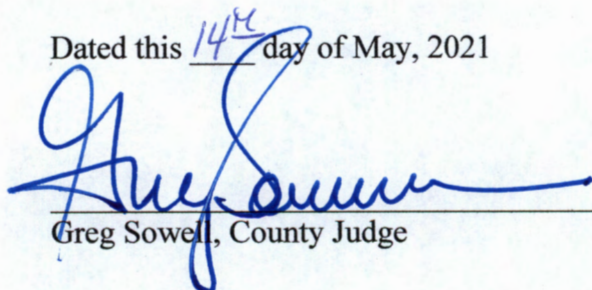 Dated this 14th day of May, 2021
Greg Sowell
Greg Sowell, County Judge